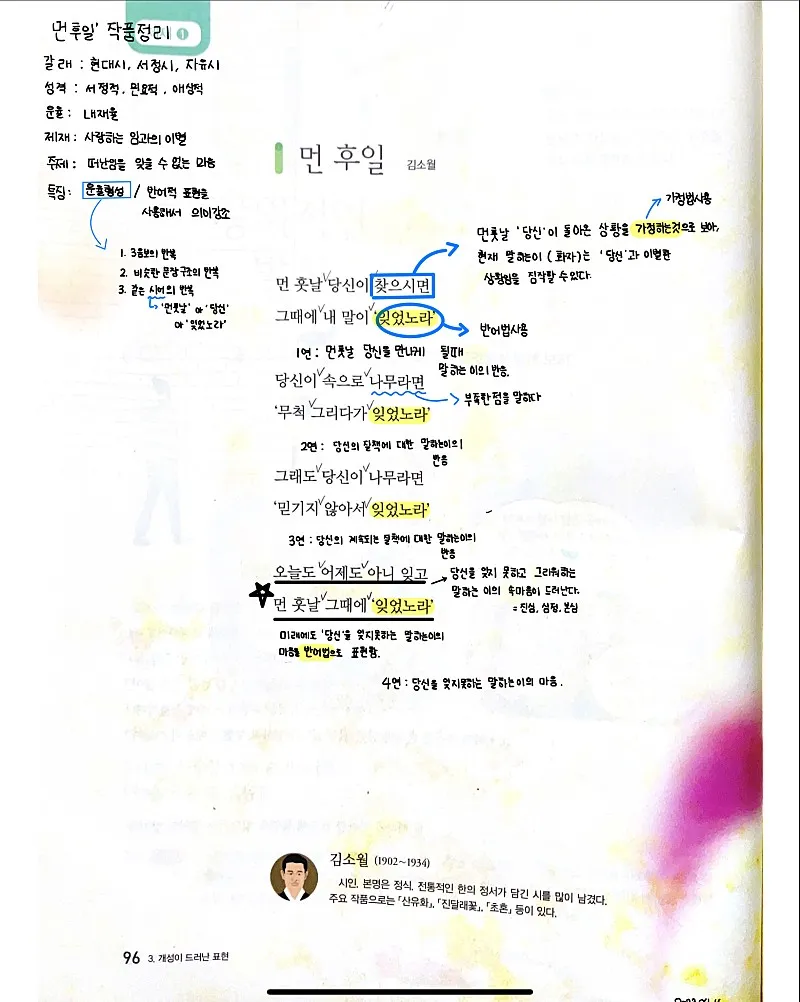 '먼후일' 작품정리 1
갈래 : 현대시, 서정시, 자유시
성격 : 서정적, 민요적, 애상적
운율 : 내재율
제재 : 사랑하는 임과의 이별
주제 : 떠난임을 잊을 수 없는 마음
특징 : 운율형성 / 반어적 표현을
사용해서 의미강조
1. 3음보의 반복
2. 비슷한 문장구조의 반복
3. 같은 시어의 반복
'먼훗날' 아 '당신'
아 '잊었노라'
먼 후일 김소월
가정법사용
먼훗날 '당신'이 돌아온 상황을 가정하는것으로 보아,
현재 말하는이 (화자)는 '당신'과 이별한
상황임을 짐작할 수 있다.
먼 훗날 당신이 찾으시면
그때에 내 말이 '잊었노라'
반어법사용
1연 : 먼훗날 당신을 만나게 될때
말하는 이의 반응.
당신이 속으로 나무라면
부족한점을 말하다
'무척 그리다가 잊었노라'
2연 : 당신의 질책에 대한 말하는이의
반응
그래도 당신이 나무라면
'믿기지 않아서 잊었노라'
3연 : 당신의 계속되는 질책에 대한 말하는이의
반응
오늘도 어제도 아니 잊고
당신을 잊지 못하고 그리워하는
말하는 이의 속마음이 드러난다.
= 진심, 심정, 본심
먼 훗날 그때에 '잊었노라'
미래에도 '당신'을 잊지못하는 말하는이의
마음을 반어법으로 표현함.
4연 : 당신을 잊지못하는 말하는이의 마음.
김소월 (1902~1934)
시인. 본명은 정식. 전통적인 한의 정서가 담긴 시를 많이 남겼다.
주요 작품으로는 「산유화」, 「진달래꽃」, 「초혼」 등이 있다.
96 3. 개성이 드러난 표현